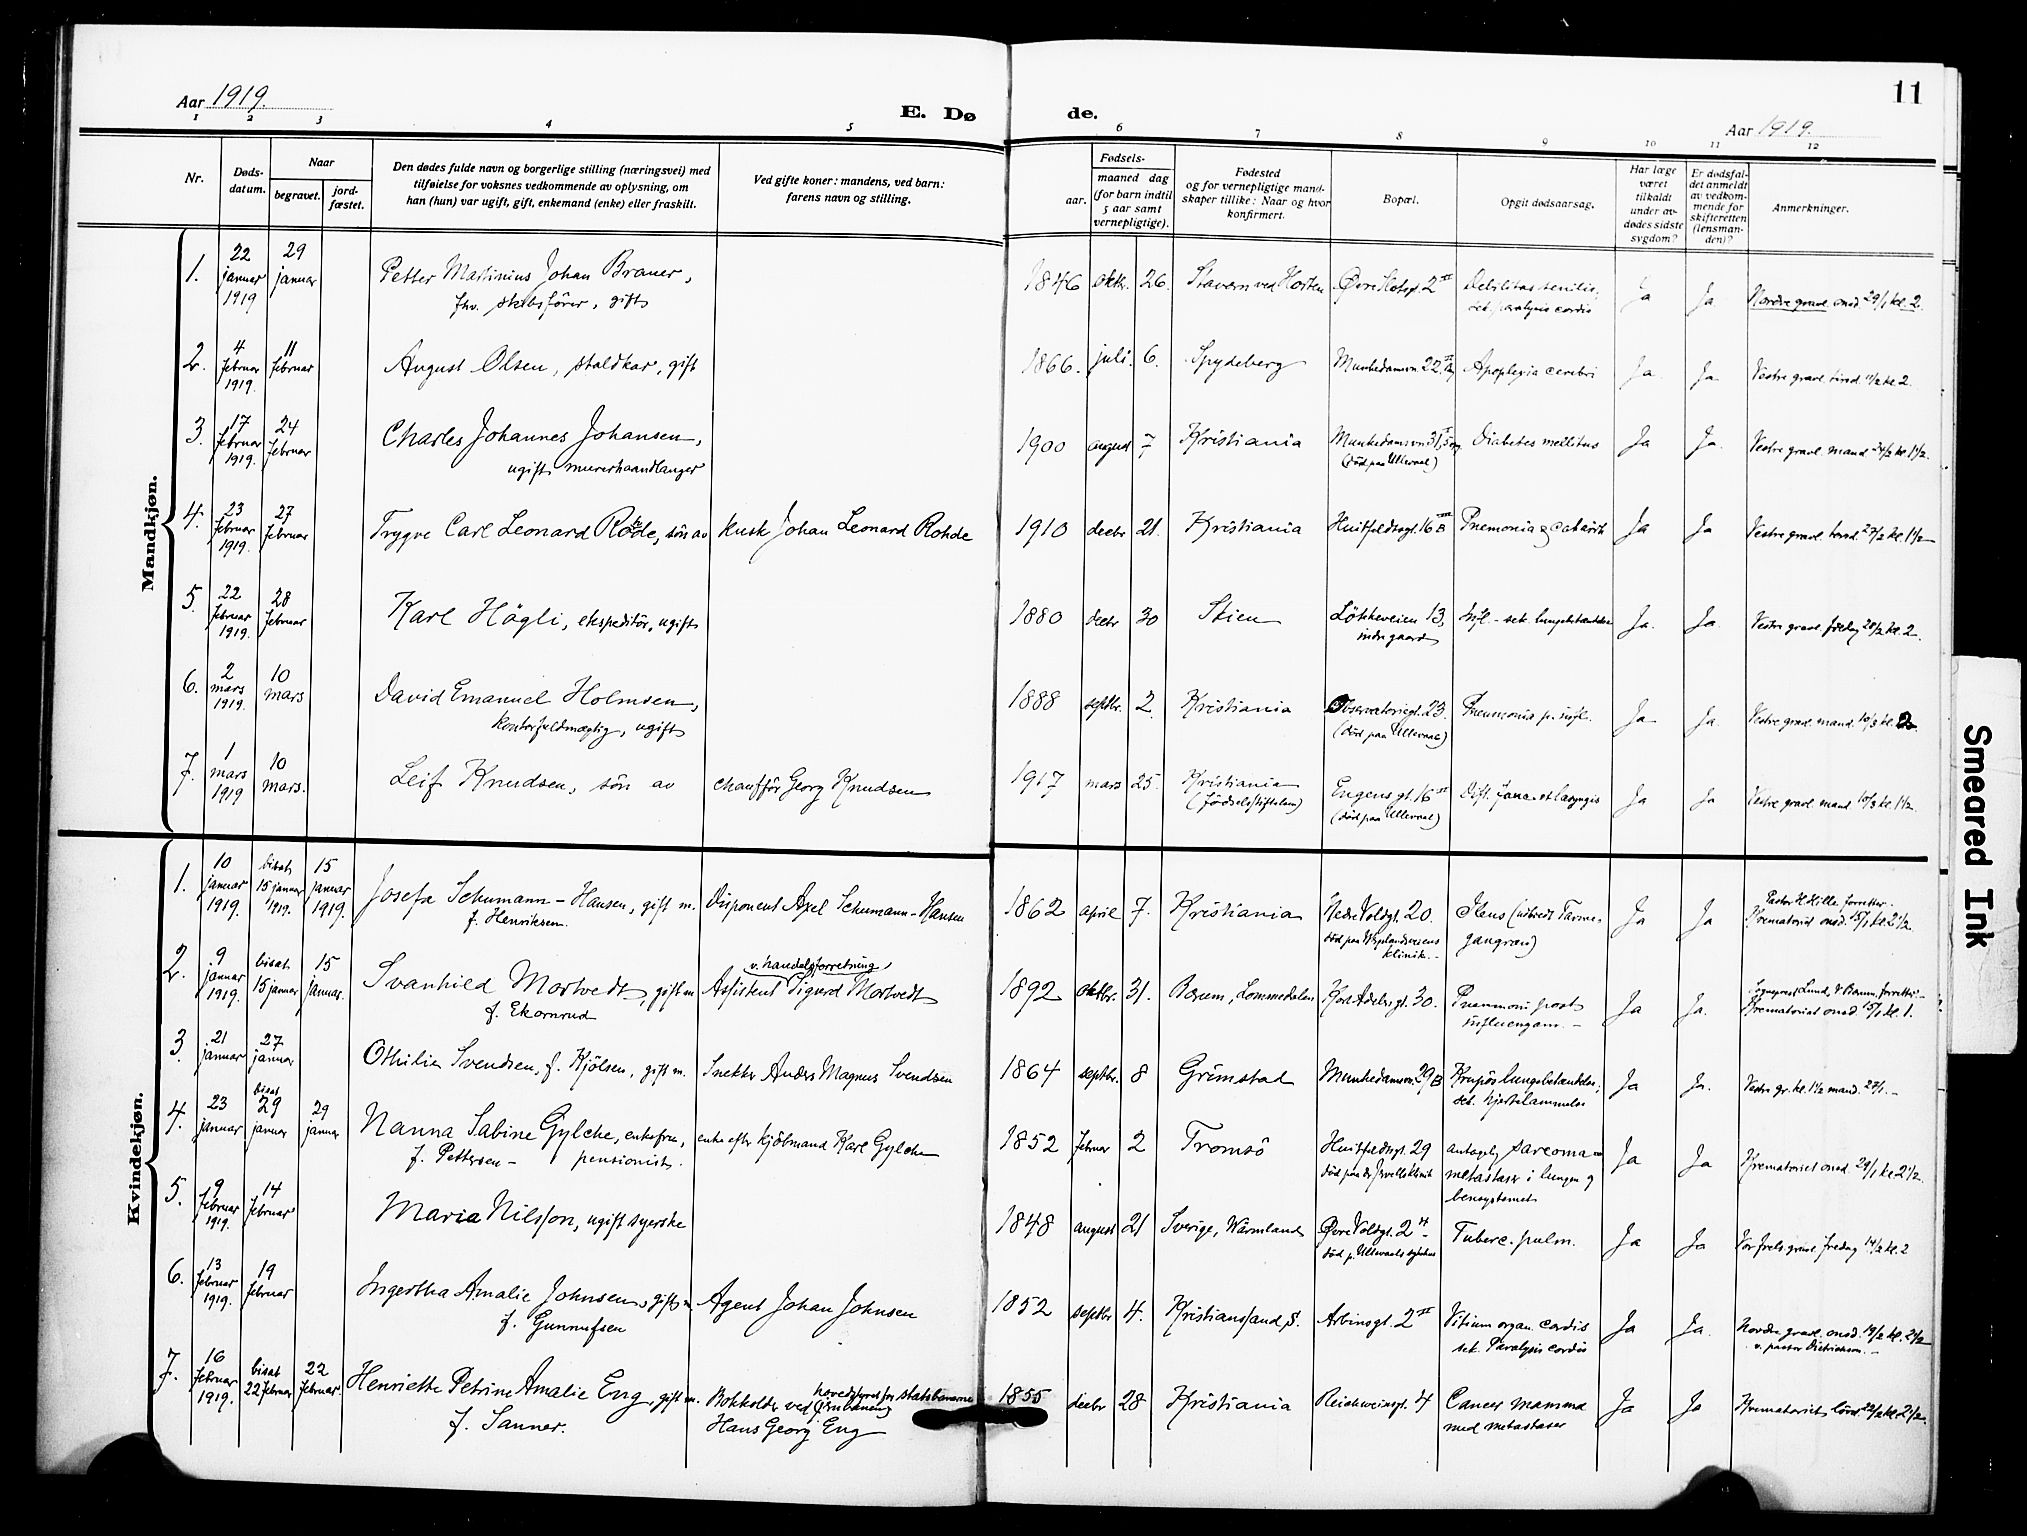 11
Aar 1919.
E. Dø
de.
Aar 1919.
1 2 3 4 5 6 7 8 9 10 11 12
Nr.
Døds-
datum.
Naar
begravet.
jord-
fæstet.
Den dødes fulde navn og borgerlige stilling (næringsvei) med
tilføielse for voksnes vedkommende av oplysning, om
han (hun) var ugift, gift, enkemand (enke) eller fraskilt.
Ved gifte koner: mandens, ved barn:
farens navn og stilling.
Fødsels-
aar.
maaned dag
(for barn indtil
5 aar samt
vernepligtige).
Fødested
og for vernepligtige mand-
skaper tillike: Naar og hvor
konfirmert.
Bopæl.
Opgit dødsaarsag.
Har læge
været
tilkaldt
under av-
dødes sidste
sygdom?
Er dødsfal-
det anmeldt
av vedkom-
mende for
skifteretten
(lensman-
den)?
Anmerkninger.
Mandkjøn.
1. 22 januar 1919 29 januar Petter Martinius Johan Brauer,
fhv. skibsfører, gift
1846 oktbr. 26. Stavern ved Horten Øvre Slotsgt. 2 III Debilitas senilis,
seb. paralysis cordis
Ja Ja Nordre gravl. onsd. 29/1 kl. 2.
2. 4 februar 1919. 11 februar August Olsen, staldkar, gift
1866. juli. 6. Spydeberg Munkedamsvn. 22 Apoplexia cerebri Ja Ja Vestre gravl. tirsd. 11/2 kl. 2.
3. 17 februar 1919. 24 februar Charles Johannes Johansen,
ugift murerhaandlanger
1900 august 7 Kristiania Munkedamsvn 31
(död paa Ullevaal)
Diabetes mellitus Ja Ja. Vestre gravl. mand. 24/2 kl. 1½.
4. 23 februar 1919. 27 februar Trygve Carl Leonard Rohde, sön av kusk Johan Leonard Rohde
1910 decbr 21. Kristiania Huitfeldtsgt. 16 B III Pnemonia & Ja Ja Vestre gravl. torsd. 27/2 kl. 1½
5. 22 februar 1919. 28 februar Karl Högli, ekspeditör, ugift
1880 decbr 30 Skien Lökkeveien 13,
indre gaard
Infl. - seb. lungebetændelse Ja. Ja. Vestre gravl. fredag 28/2 kl. 2.
6. 2 mars 1919. 10 mars David Emanuel Holmsen,
kontorfuldmægtig, ugift
1888 septbr. 2. Kristiania Observatoriegt. 23.
(död paa Ullevaal)
Pneumonia p. infl. Ja Ja. Vestre gravl. mand. 10/3 kl. 2
7. 1 mars 1919 10 mars. Leif Knudsen, sön av chafför Georg Knudsen
1917 mars 25. Kristiania
(Födselsstiftelsen)
Engens gt. 16 II
(död paa Ullevaal)
Dift. et laryngis Ja Ja Vestre gravl. mand. 10/3 kl. 1½
Kvindekjøn.
1. 10 januar 1919. bisat 15 januar 1919. 15 januar 1919. Josefa Schumann-Hansen, gift m. Disponent Axel Schumann-Hansen
f. Henriksen.
1862 april 7. Kristiania Nedre Voldgt. 20.
död paa
klinik.
Ileus (utbredt Tarme-
gangræn)
Ja Ja Pastor H Hille forretter.
Krematoriet onsd. 15/1 kl. 2½.
2. 9 januar 1919. bisat 15 januar 15 januar. Svanhild Mortvedt, gift m Assistent v. handelsforretning, Sigurd Mortvedt
f. Ekornrud
1892 oktbr. 31. Bærum, Lommedalen Kort Adelers gt. 30. Pneumoni post
influenzam. -
Ja Ja. Sogneprest Lund, V. Bærum, forretter. -
Krematoriet onsd. 15/1 kl. 1.
3. 21 januar 27 januar Othilie Svendsen, f. Kjölsen, gift m. Snekker Anders Magnus Svendsen
1864 septbr. 8 Grimstad Munkedamsvn. 29 B Krupös lungebetændelse,
seb. hjertelammelse
Ja Ja. Vestre gr. kl. 1½ mand. 27/1. -
4. 23 januar bisat 29 januar 29 januar Nanna Sabine Gylche, enkefru, enke efter kjöbmand Karl Gylche
f. Pettersen - pensionist.
1852 februar 2 Tromsö Huitfeldtsgt. 29
antagelig sarcoma -
metastaser i lungen og
bensystemet
Ja Ja Krematoriet onsd. 29/1 kl. 2½.
5. 9 februar 1919. 14 februar Maria Nilsson, ugift syerske
1848 august 21 Sverige, Wärmland Øvre Voldgt. 2 II
död p. Ullevaals sykehus
Tuberc. pulm. Ja Ja Vor frels. gravl. fredag 14/2 kl. 2
6. 13 februar 1919. 19 februar Ingertha Amalie Johnsen, gift m. Agent Johan Johnsen
f. Gunnufsen
1852 septbr 4. Kristianssand S. Arbinsgt. 2 III Vitium organ. cordis
seb. Paralysis cordis
Ja Ja. Nordre gravl. onsd. 19/2 kl. 2½
v. pastor Dietrichson. -
7. 16 februar 1919. bisat 22 februar 22 februar Henriette Petrine Amalie Eng, gift m. Bokholder ved hovedstyret for statsbanerne
f. Sanner. Hans Georg Eng
1855 decbr 28 Kristiania Reichweinsgt. 4 Cancer mamma
med metastaser
Ja Ja Krematoriet lörd. 22/2 kl. 2½.
Smeared Ink